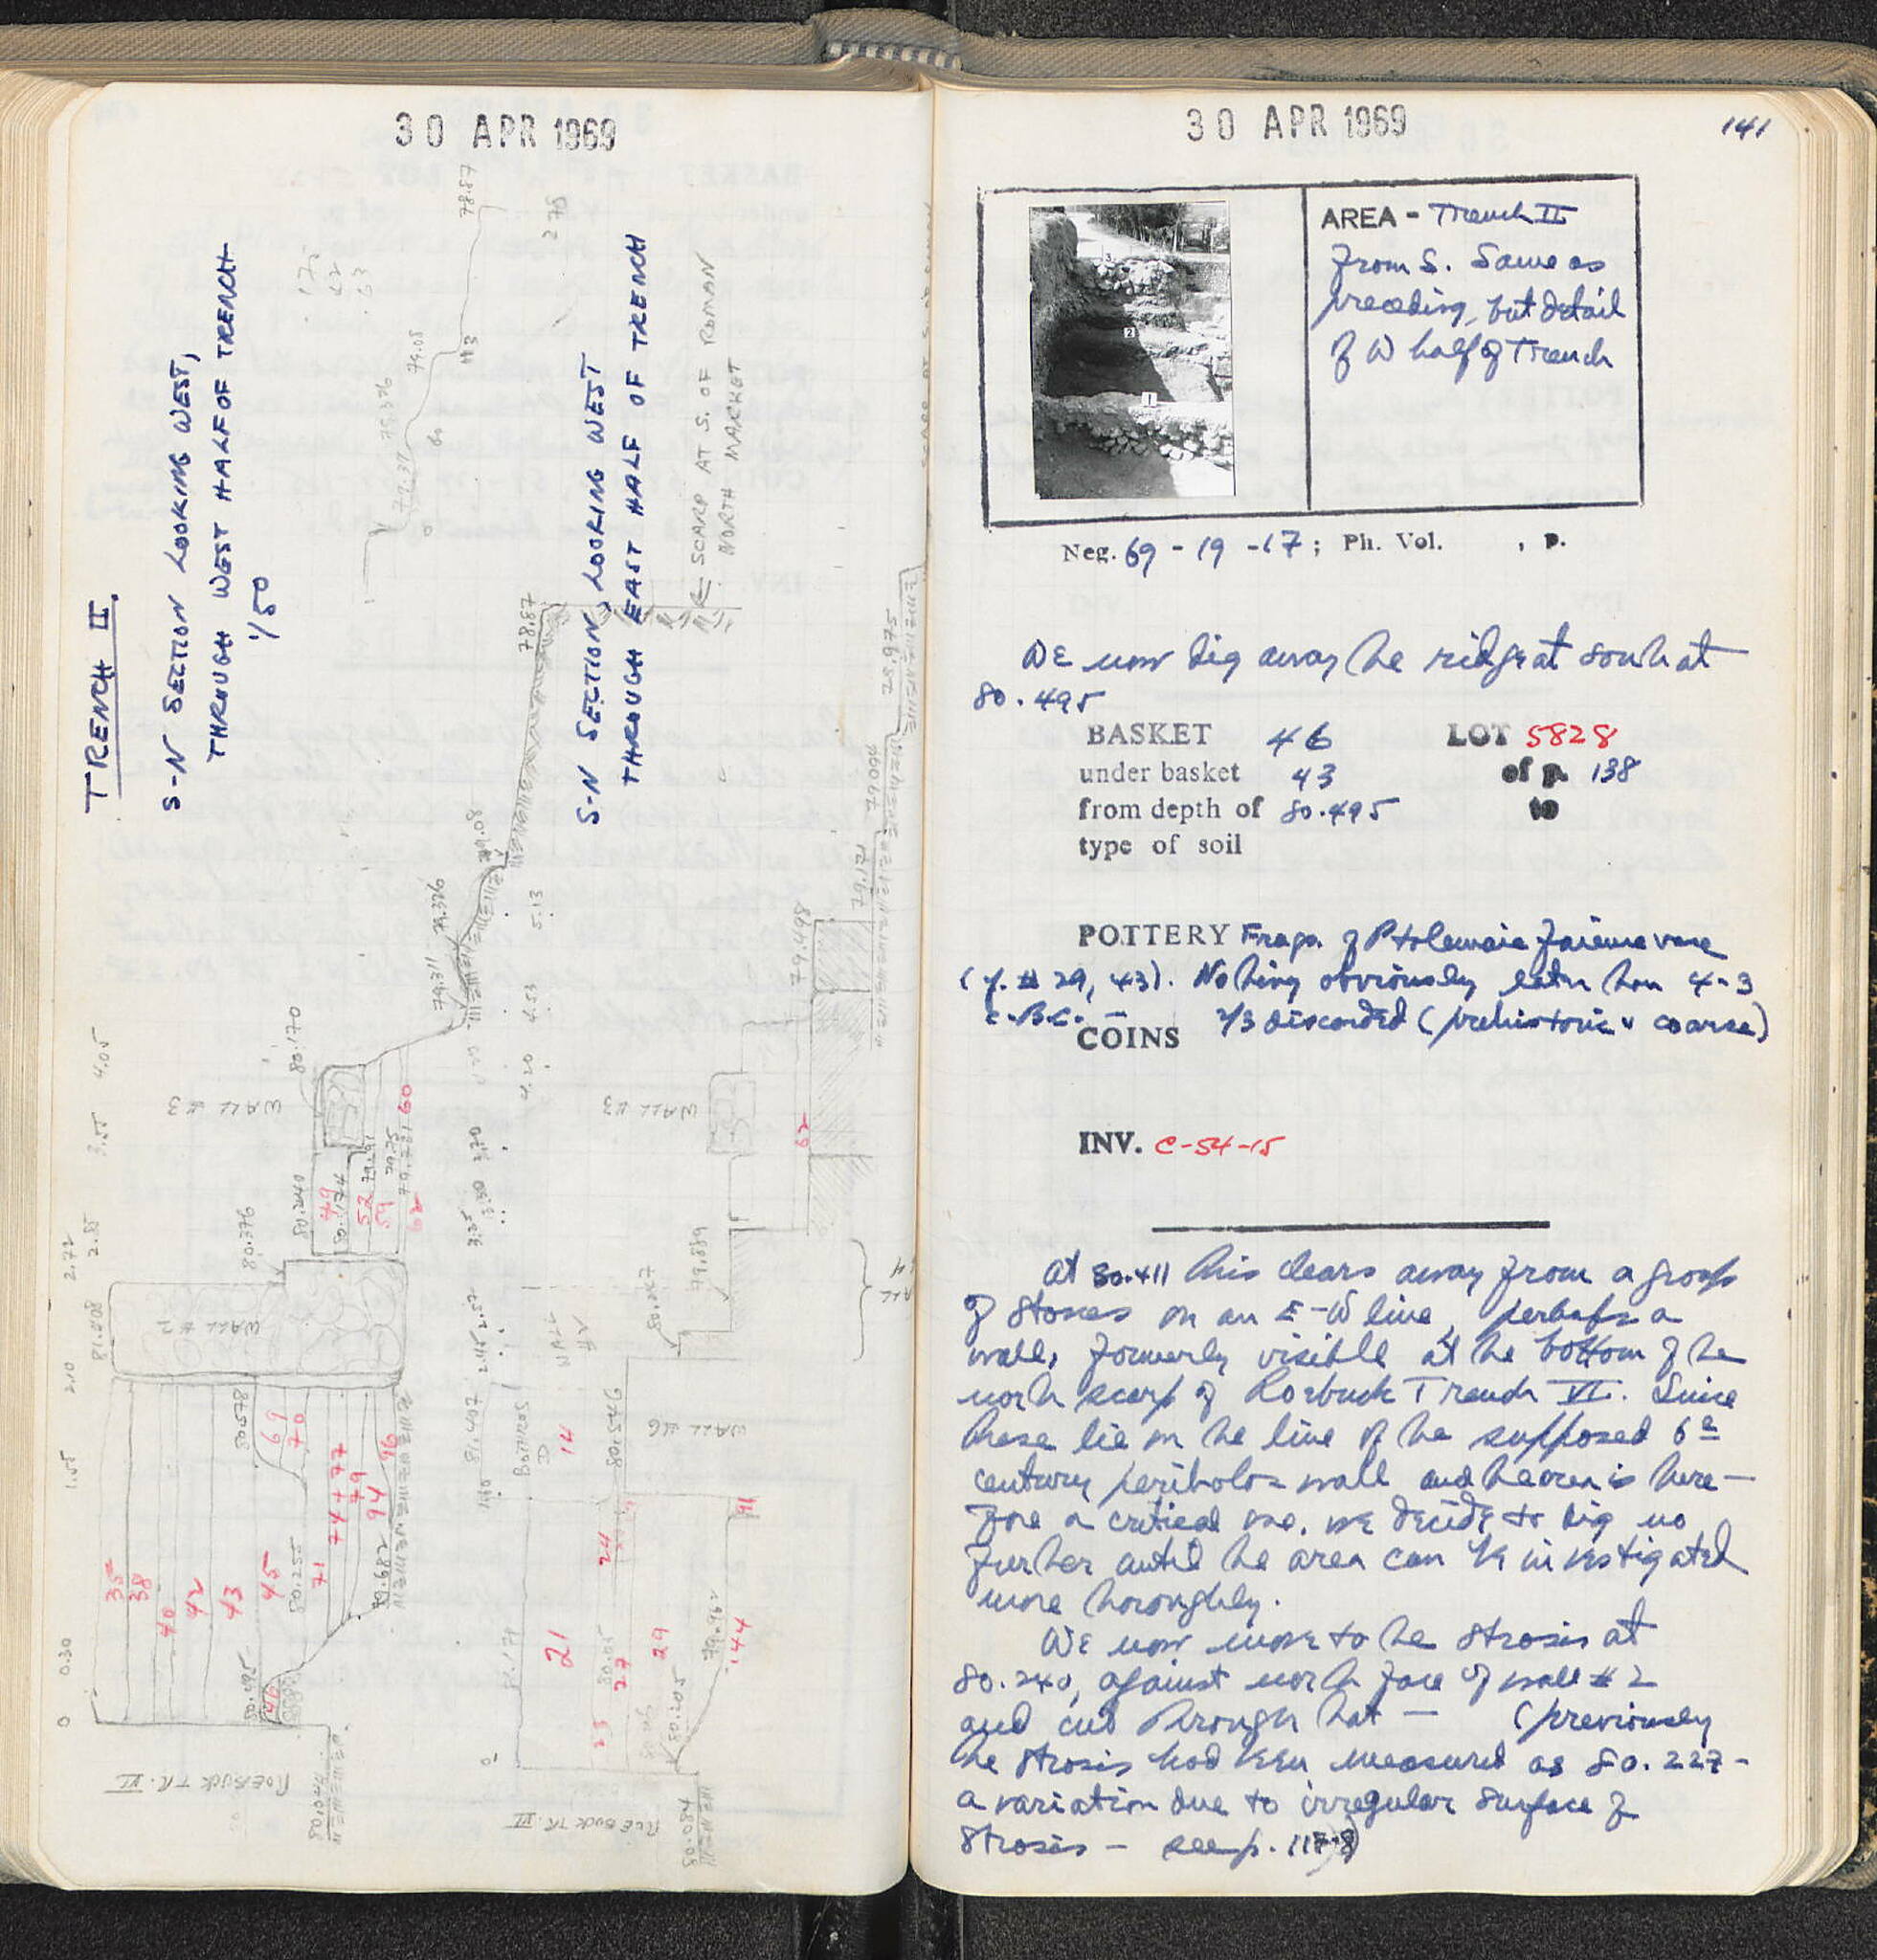 30 APR 1969
TRENCH II.
S-N SECTION LOOKING WEST,
THROUGH WEST HALF OF TRENCH
1/50
78.87
79.08
#3
S-N SECTION, LOOKING WEST
THROUGH EAST HALF OF TRENCH
← SCARP AT S. OF ROMAN
NORTH MARKET
78.87
78.975
79.066
79.08
79.326
79.311
79.171
79.498
5.13
4.53
4.20
4.05
3.55
2.85
2.72
2.10
1.55
0.30
0
80.170
WALL #3
WALL #3
60
62
80.240
49
80.174
52
59
62
80.376
WALL #2
81.008
79.889
80.578
69
70
81.407
BOTHROS
D
14
80.546
WALL #6
35
38
40
42
43
45
80.255
71
74+77
79
94
96
79.682
80.495
46
21
24
27
29
23
79.962
144
80.205
ROEBUCK TR. VI
ROEBUCK TR. VI
80.084
30 APR 1969
141
AREA - Trench II
from S. Same as
preceding, but detail
of W half of Trench
3
2
1
Neg. 69-19-17; Ph. Vol. , p.
We now dig away the ridge at south at
80.495
BASKET 46 LOT 5828
under basket 43 of p. 138
from depth of 80.495 to
type of soil
POTTERY Frags. of Ptolemaic faience vase
(cf. # 29, 43). Nothing obviously later than 4-3
c. B.C. — 2/3 discarded (prehistoric & coarse)
COINS
INV. C-54-15
At 80.411 this clears away from a group
of stones on an E-W line, perhaps a
wall, formerly visible at the bottom of the
north scarp of Roebuck Trench VI. Since
these lie on the line of the supposed 6th
century peribolos wall and the area is there-
fore a critical one, we decide to dig no
further until the area can be investigated
more thoroughly.
We now move to the strosis at
80.240, against north face of wall #2
and cut through that — (previously
the strosis had been measured as 80.227 -
a variation due to irregular surface of
strosis - see p. 117-8)